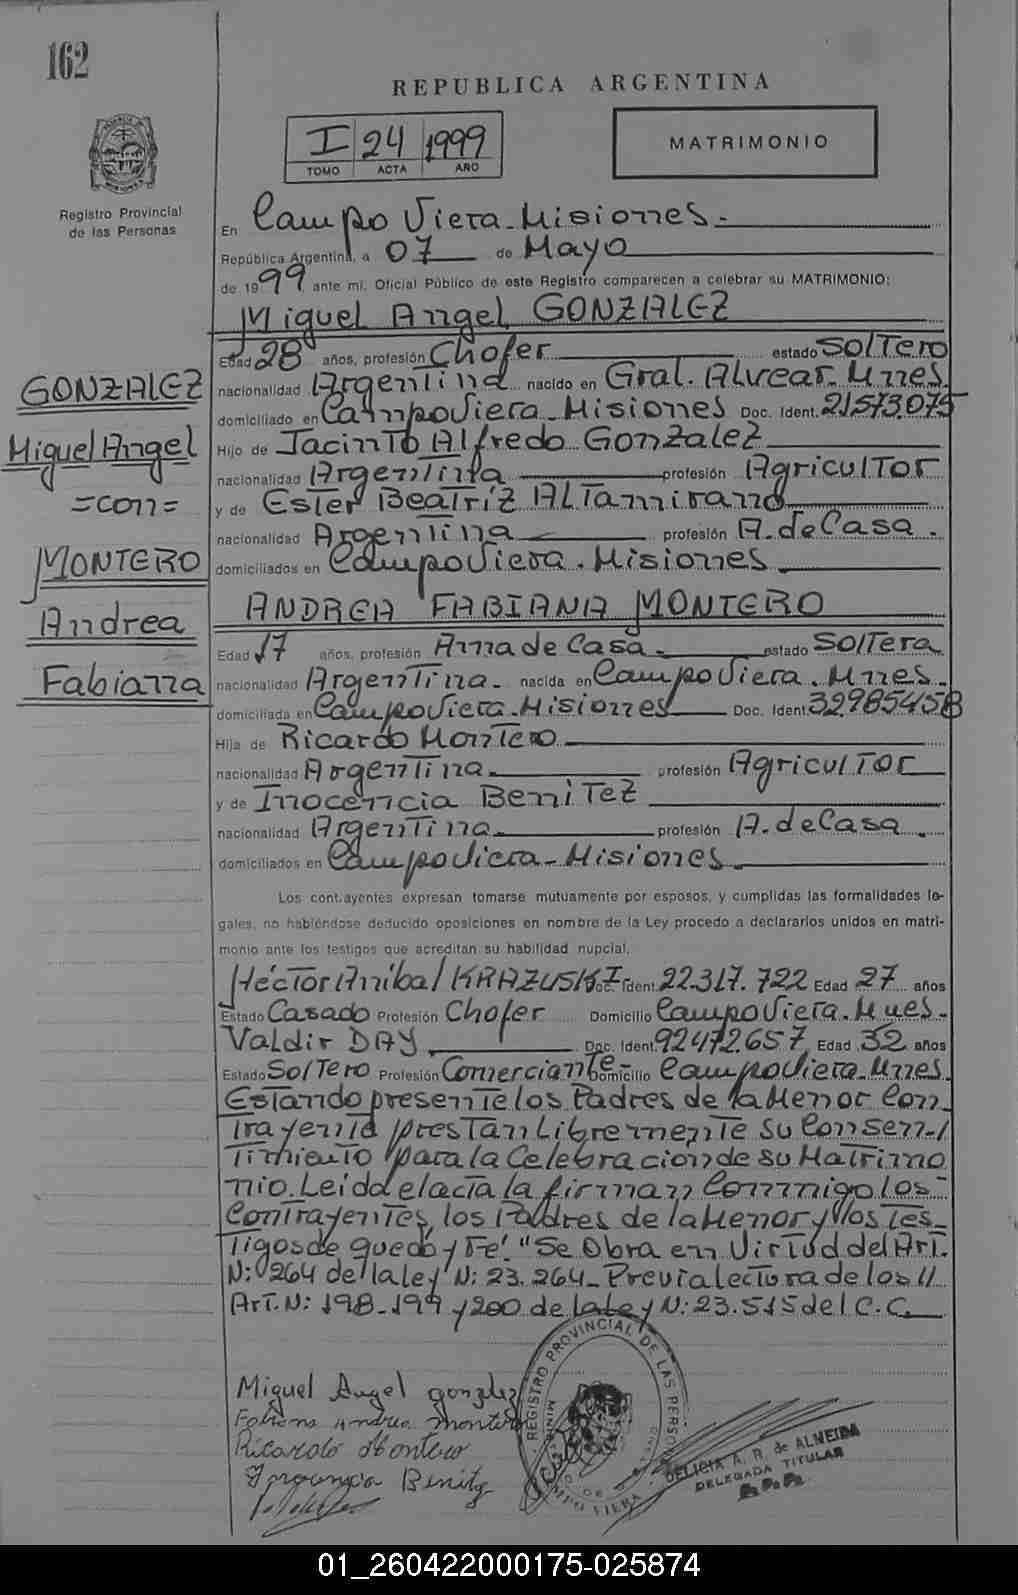 162
REPUBLICA ARGENTINA
I 24 1999
TOMO ACTA AÑO
MATRIMONIO
Registro Provincial
de las Personas
En Campo Viera - Misiones -
República Argentina, a 07 de Mayo
de 1999 ante mi, Oficial Público de este Registro comparecen a celebrar su MATRIMONIO:
Miguel Angel GONZALEZ
Edad 28 años, profesión Chofer estado Soltero
nacionalidad Argentina nacido en Gral. Alvear - Mnes.
domiciliado en Campo Viera - Misiones Doc. Ident. 21.573.075
Hijo de Jacinto Alfredo Gonzalez
nacionalidad Argentina profesión Agricultor
y de Ester Beatríz Altamirano
nacionalidad Argentina profesión A. de Casa.
domiciliados en Campo Viera - Misiones.
GONZALEZ
Miguel Angel
=con=
MONTERO
Andrea
Fabiana
ANDREA FABIANA MONTERO
Edad 17 años, profesión Ama de Casa. estado Soltera
nacionalidad Argentina. nacida en Campo Viera. Mnes.
domiciliada en Campo Viera - Misiones Doc. Ident. 32985458
Hija de Ricardo Montero
nacionalidad Argentina. profesión Agricultor
y de Inocencia Benitez
nacionalidad Argentina. profesión A. de Casa.
domiciliados en Campo Viera - Misiones.
Los contrayentes expresan tomarse mutuamente por esposos, y cumplidas las formalidades le-
gales, no habiéndose deducido oposiciones en nombre de la Ley procedo a declararlos unidos en matri-
monio ante los testigos que acreditan su habilidad nupcial.
Héctor Anibal KRAZUSKI Doc. Ident. 22.317.722 Edad 27 años
Estado Casado Profesión Chofer Domicilio Campo Viera. Mnes.
Valdir DAY Doc. Ident. 92472.657 Edad 32 años
Estado Soltero Profesión Comerciante - Domicilio Campo Viera - Mnes.
Estando presente los Padres de la Menor Con-
trayente prestan Libremente su Consen-
timiento para la Celebracion de su Matrimo
nio. Leida el acta la firman Conmigo los
Contrayentes, los Padres de la Menor y los Tes-
tigos de que doy Fe! "Se Obra en Virtud del Art.
N: 264 de la ley N: 23.264 - Previa lectura de los //
Art. N: 198 - 199 y 200 de la Ley N: 23.515 del C.C.
Miguel Angel gonzalez
Fabiana Andrea montero
Ricardo Montero
Inocencia Benitez
REGISTRO PROVINCIAL DE LAS PERSONAS
CAMPO VIERA
DELICIA A. R. de ALMEIDA
DELEGADA TITULAR
R. P. P.
01_260422000175-025874